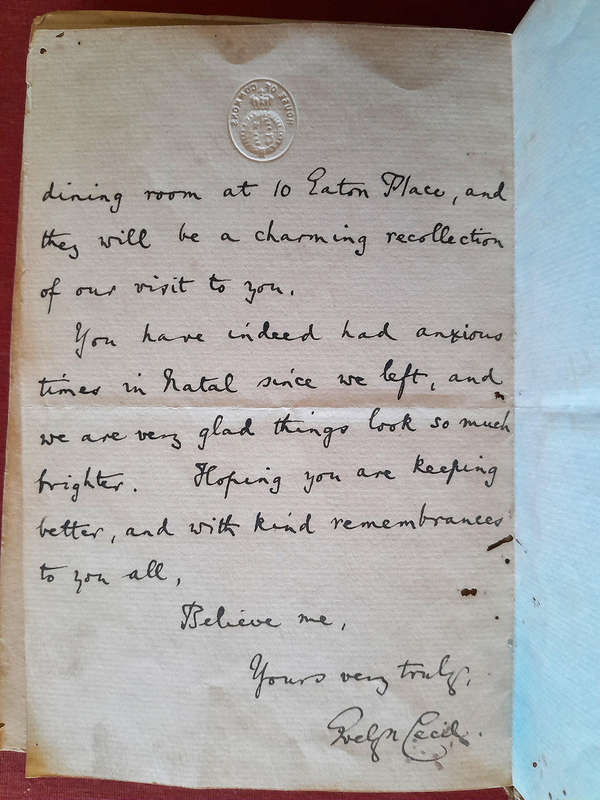 HOUSE OF COMMONS
dining room at 10 Eaton Place, and
they will be a charming recollection
of our visit to you.
You have indeed had anxious
times in Natal since we left, and
we are very glad things look so much
brighter. Hoping you are keeping
better, and with kind remembrances
to you all,
Believe me,
Yours very truly,
Evelyn Cecil.